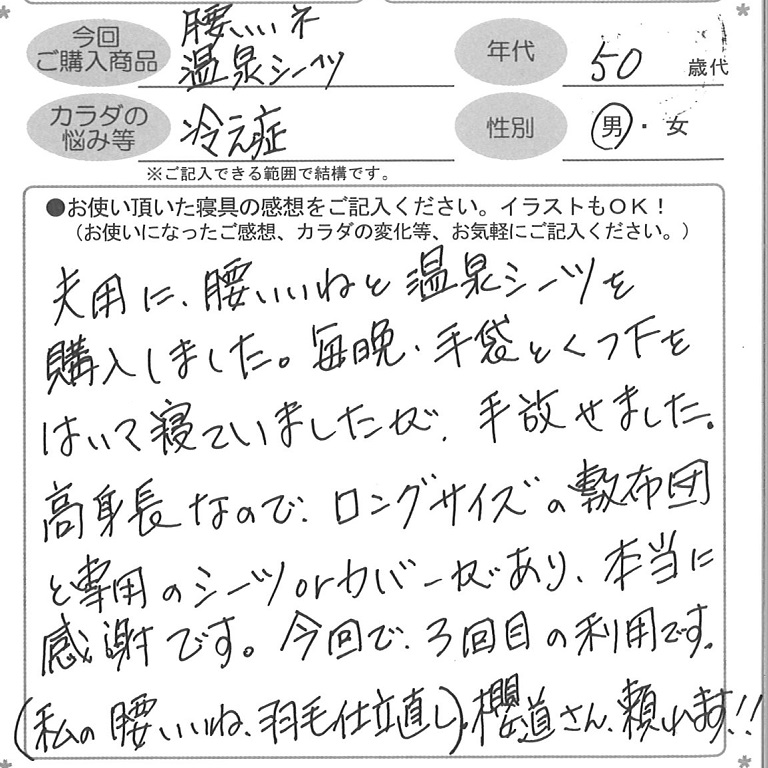 今回
ご購入商品
腰いいネ
温泉シーツ
年代
50 歳代
カラダの
悩み等
冷え症
性別
男・女
※ご記入できる範囲で結構です。
●お使い頂いた寝具の感想をご記入ください。イラストもOK!
(お使いになったご感想、カラダの変化等、お気軽にご記入ください。)
夫用に、腰いいねと温泉シーツを
購入しました。毎晩、手袋とくつ下を
はいて寝ていましたが、手放せました。
高身長なので、ロングサイズの敷布団
と専用のシーツorカバーがあり、本当に
感謝です。今回で、3回目の利用です。
(私の腰いいね、羽毛仕立直し)、櫻道さん、頼れます!!